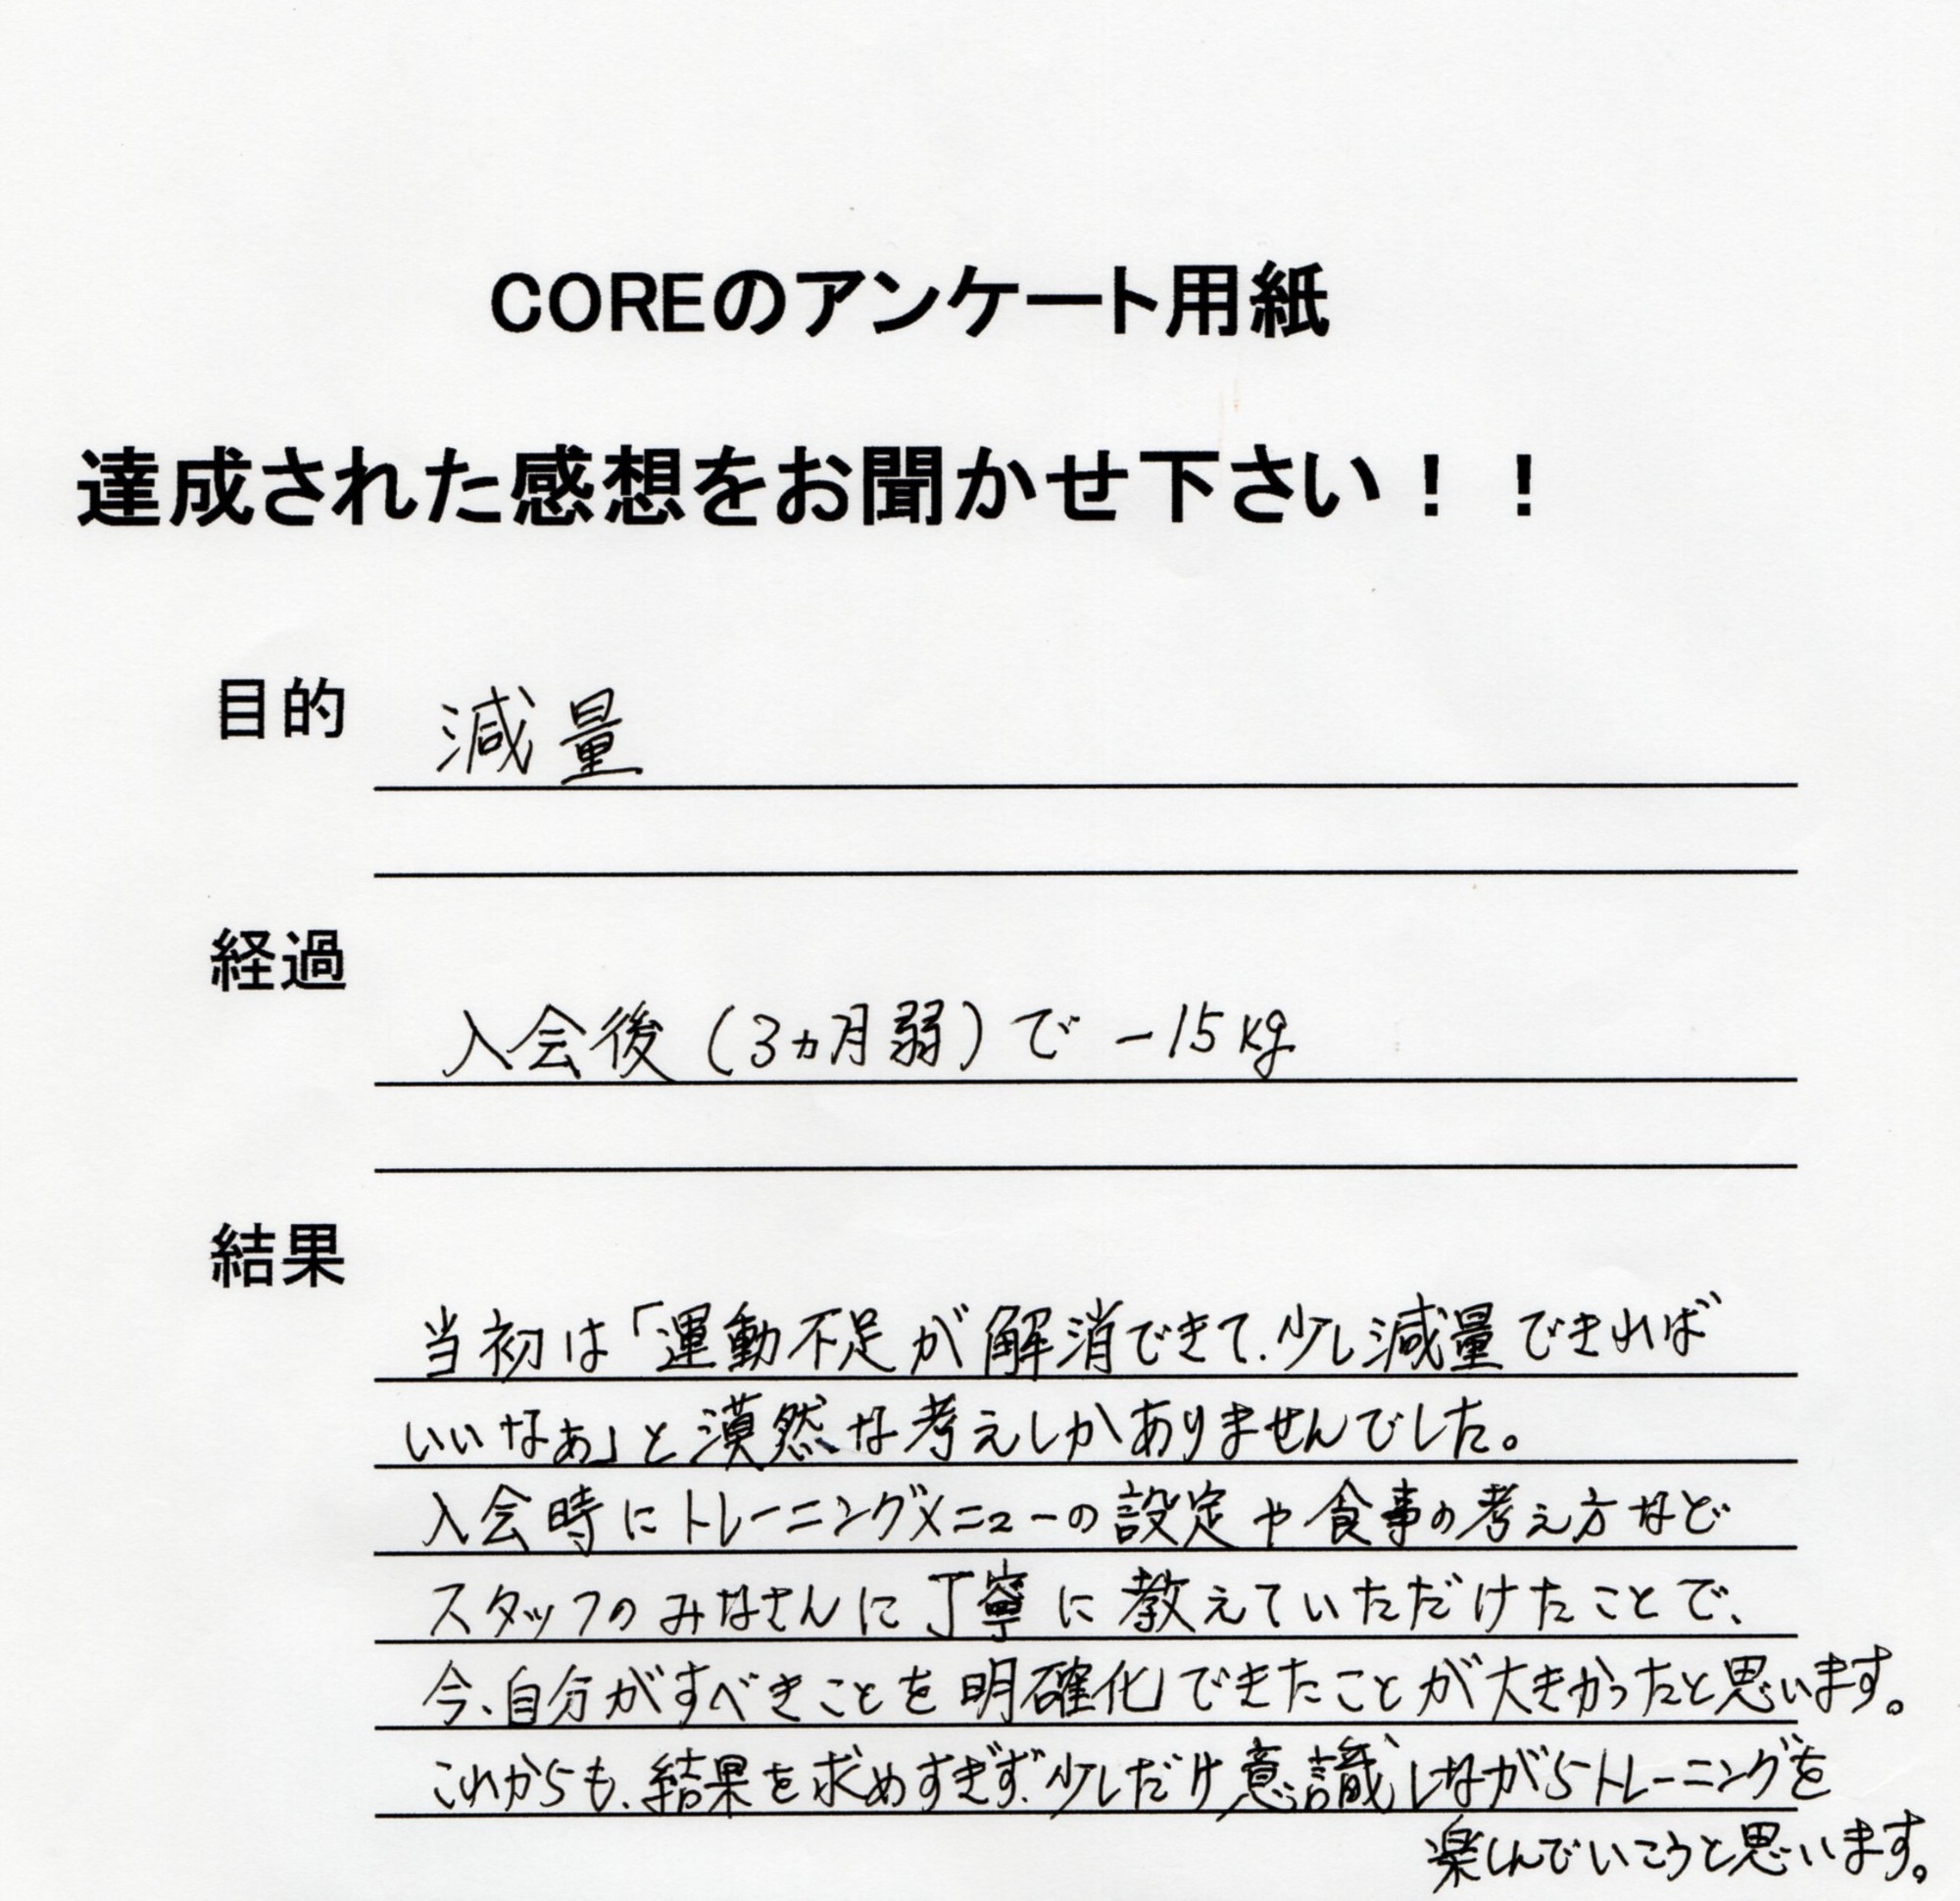 COREのアンケート用紙
達成された感想をお聞かせ下さい！！
目的
減量
経過
入会後（3ヵ月弱）で −15kg
結果
当初は「運動不足が解消できて、少し減量できれば
いいなぁ」と漠然な考えしかありませんでした。
入会時にトレーニングメニューの設定や食事の考え方など
スタッフのみなさんに丁寧に教えていただけたことで、
今、自分がすべきことを明確化できたことが大きかったと思います。
これからも、結果を求めすぎず、少しだけ意識しながらトレーニングを
楽しんでいこうと思います。